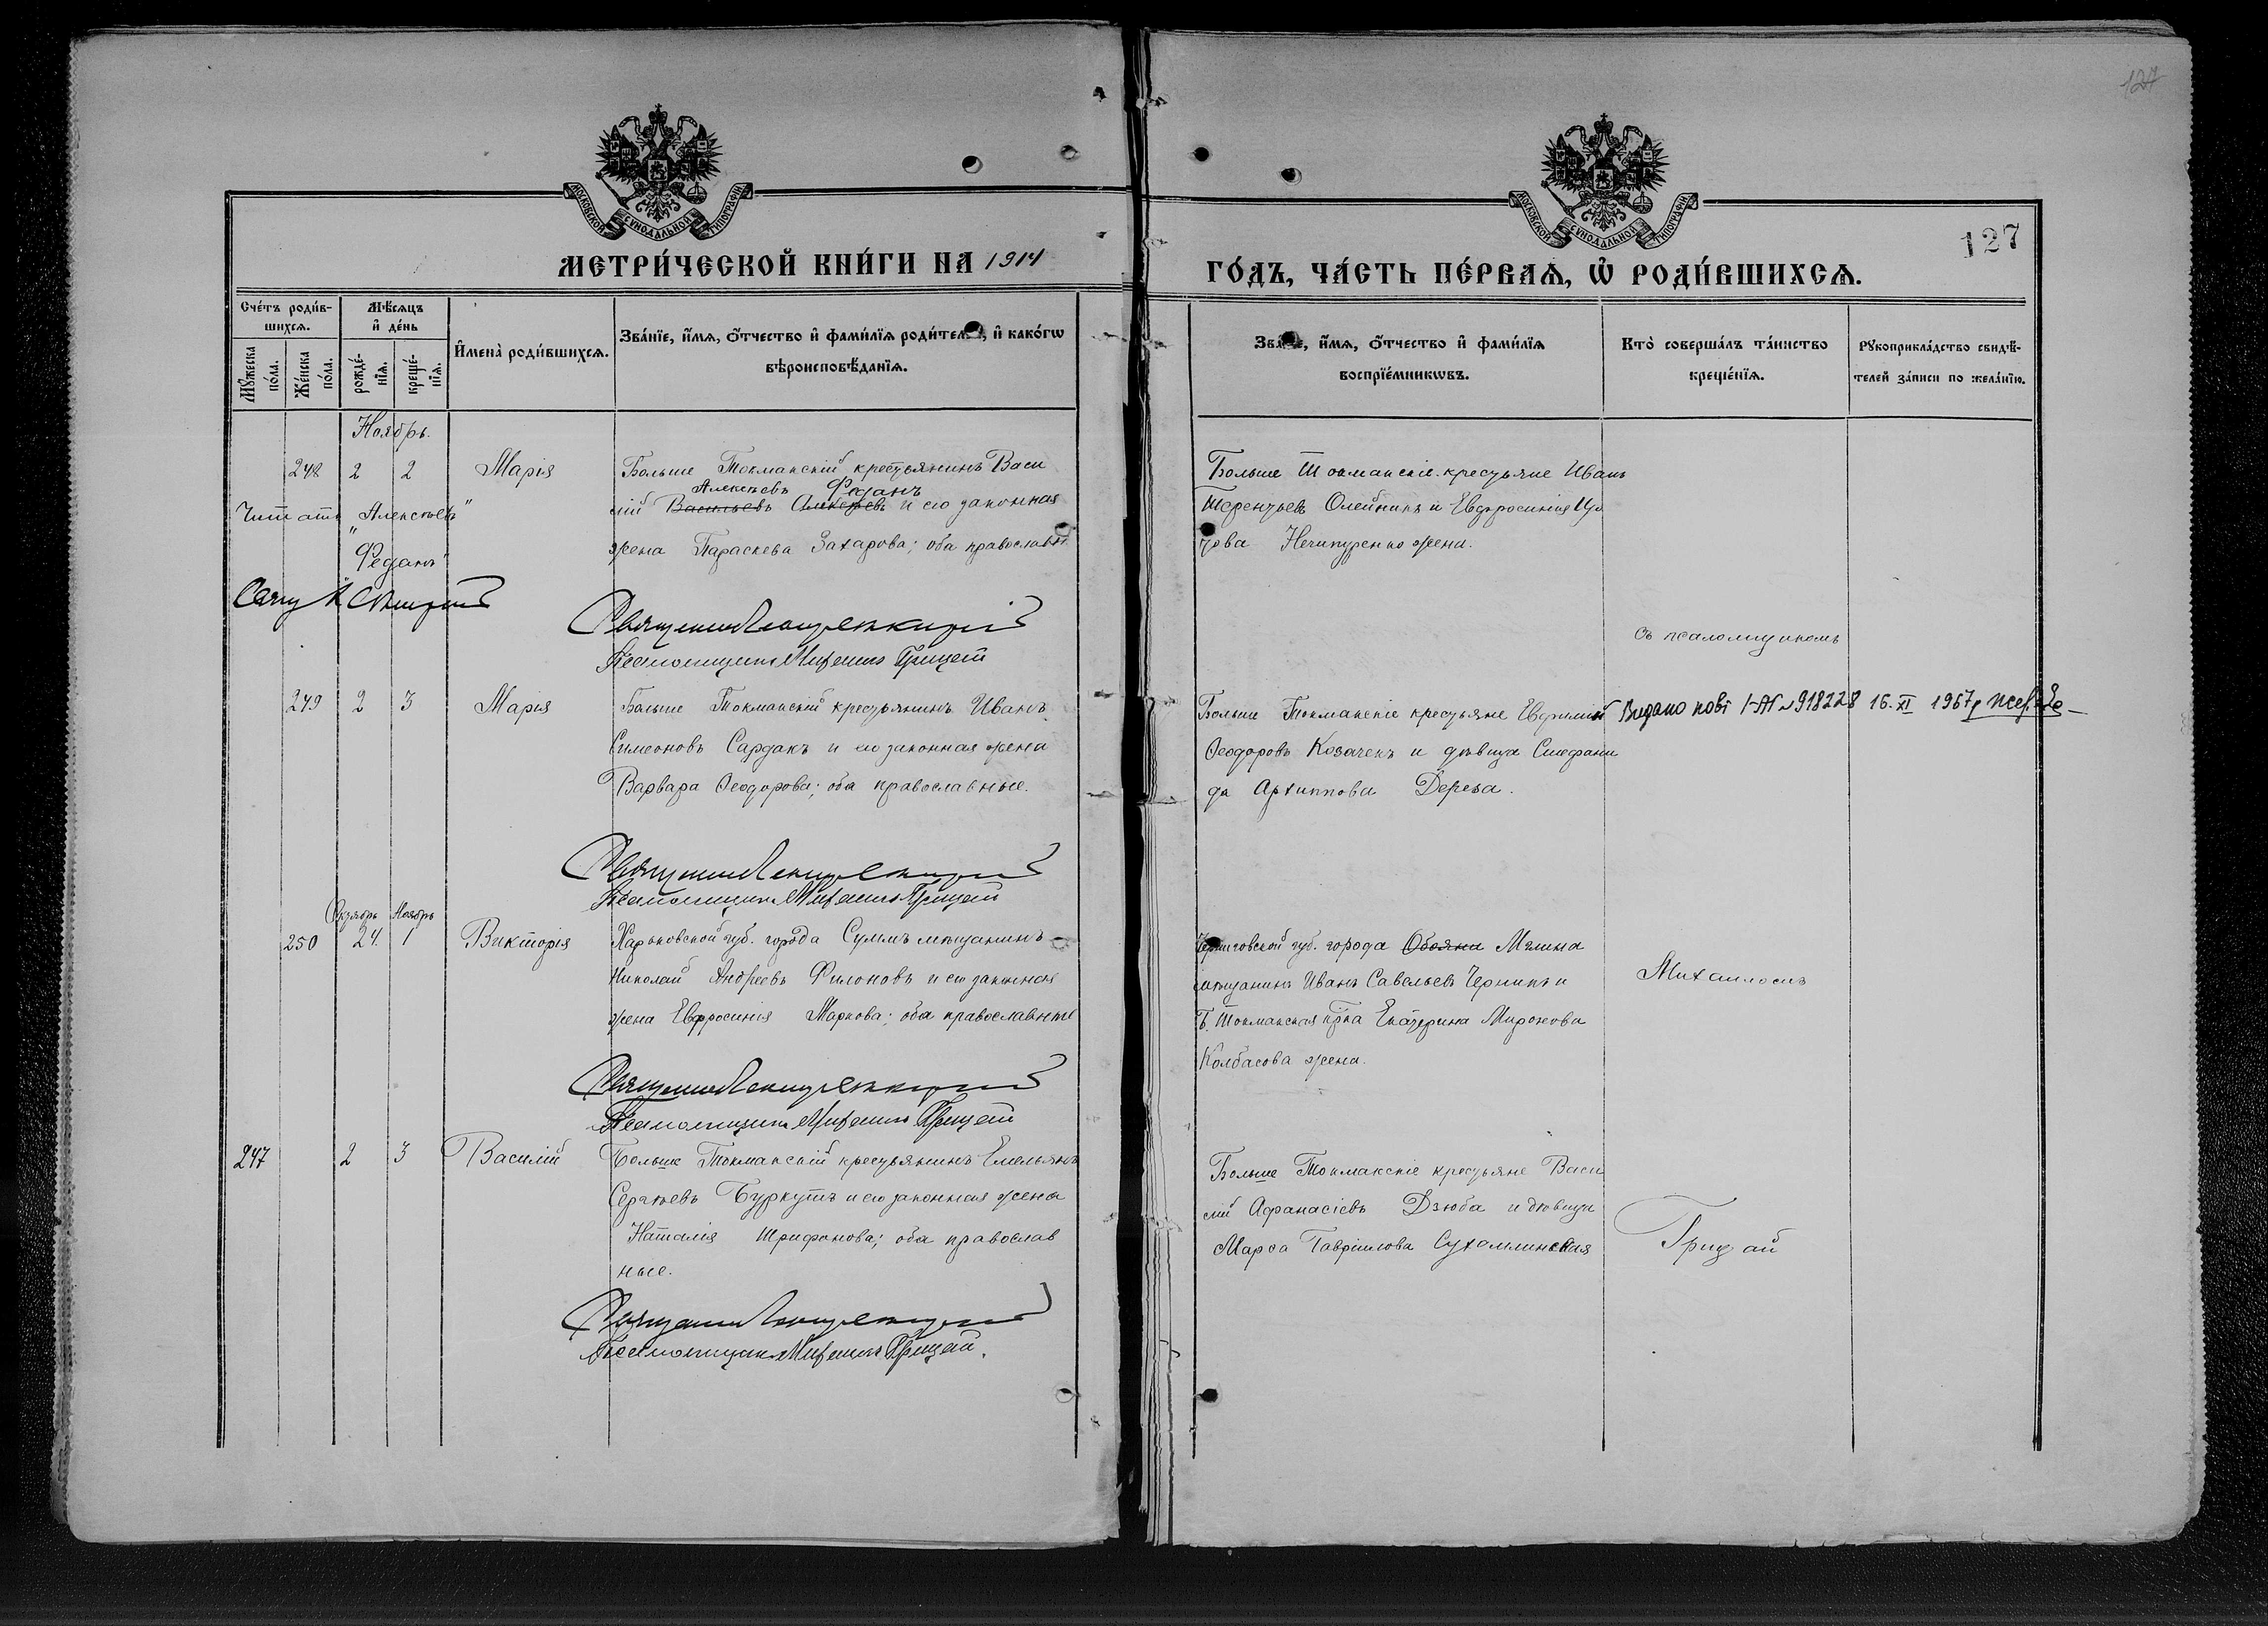 127
МОСКОВСКОЙ СѴНОДАЛЬНОЙ ТИПОГРАФІИ
МОСКОВСКОЙ СѴНОДАЛЬНОЙ ТИПОГРАФІИ
127
МЕТРИ́ЧЕСКОЙ КНИ́ГИ НА 1914
ГО́ДЪ, ЧА́СТЬ ПЕ́РВАѦ, Ѡ҆ РОДИ́ВШИХСѦ.
Сче́тъ роди́в-
шихсѧ.
Мѣ́сѧцъ
и҆ де́нь
Мꙋ́жеска
по́ла.
Же́нска
по́ла.
рожде́-
нїѧ.
креще́-
нїѧ.
И҆мена̀ роди́вшихсѧ.
Зва́нїе, и҆́мѧ, ѻ҆́тчество и҆ фами́лїѧ роди́тел , и҆ како́гѡ
вѣроисповѣ́данїѧ.
Зва́ е, и҆́мѧ, ѻ҆́тчество и҆ фами́лїѧ
воспрїе́мникѡвъ.
Кто̀ соверша́лъ та́инство
креще́нїѧ.
Рꙋкоприкла́дство свидѣ́-
телей за́писи по жела́нїю.
Ноябрь.
248 2 2 Марія
Больше Токмакскій крестьянинъ Васи
Алексѣевъ Феданъ
лій Васильевъ Алексѣевъ и его законная
жена Параскева Захарова; оба православн
Читать „Алексѣевъ"
„Феданъ"
Больше Токмакскіе крестьяне Иванъ
Терентьевъ Олейникъ и Евфросинія
Нечипуренко жена.
Священникъ
Псаломщикъ Грицай
съ псаломщикомъ
249 2 3 Марія
Больше Токмакскій крестьянинъ Иванъ
Симеоновъ Сардакъ и его законная жена
Варвара Ѳеодорова; оба православные.
Больше Токмакскіе крестьяне Евфимій
Ѳеодоровъ Козаченъ и дѣвица Стефани
да Архиппова Дереза.
Видано пові I-АП №918228 16.XI 1967р
Священникъ
Псаломщикъ Грицай
Октябрь Ноябрь
250 24. 1 Викторія
Харьковской губ. города Сумъ мѣщанинъ
Николай Андреевъ Филоновъ и его законная
жена Евфросинія Маркова; оба православные
Черниговской губ. города Обояни Мглина
мѣщанинъ Иванъ Савельевъ Черникъ и
Б. Токмакская кр-ка Екатерина Миронова
Колбасова жена.
Михаиломъ
Священникъ
Псаломщикъ Грицай
247 2 3 Василій
Больше Токмакскій крестьянинъ Емельянъ
Сергѣевъ Буркутъ и его законная жена
Наталія Трифонова; оба православ
ные.
Больше Токмакскіе крестьяне Васи
лій Афанасіевъ Дзюба и дѣвица
Марѳа Гавріилова Сухомлинская
Грицай
Священникъ
Псаломщикъ Грицай.